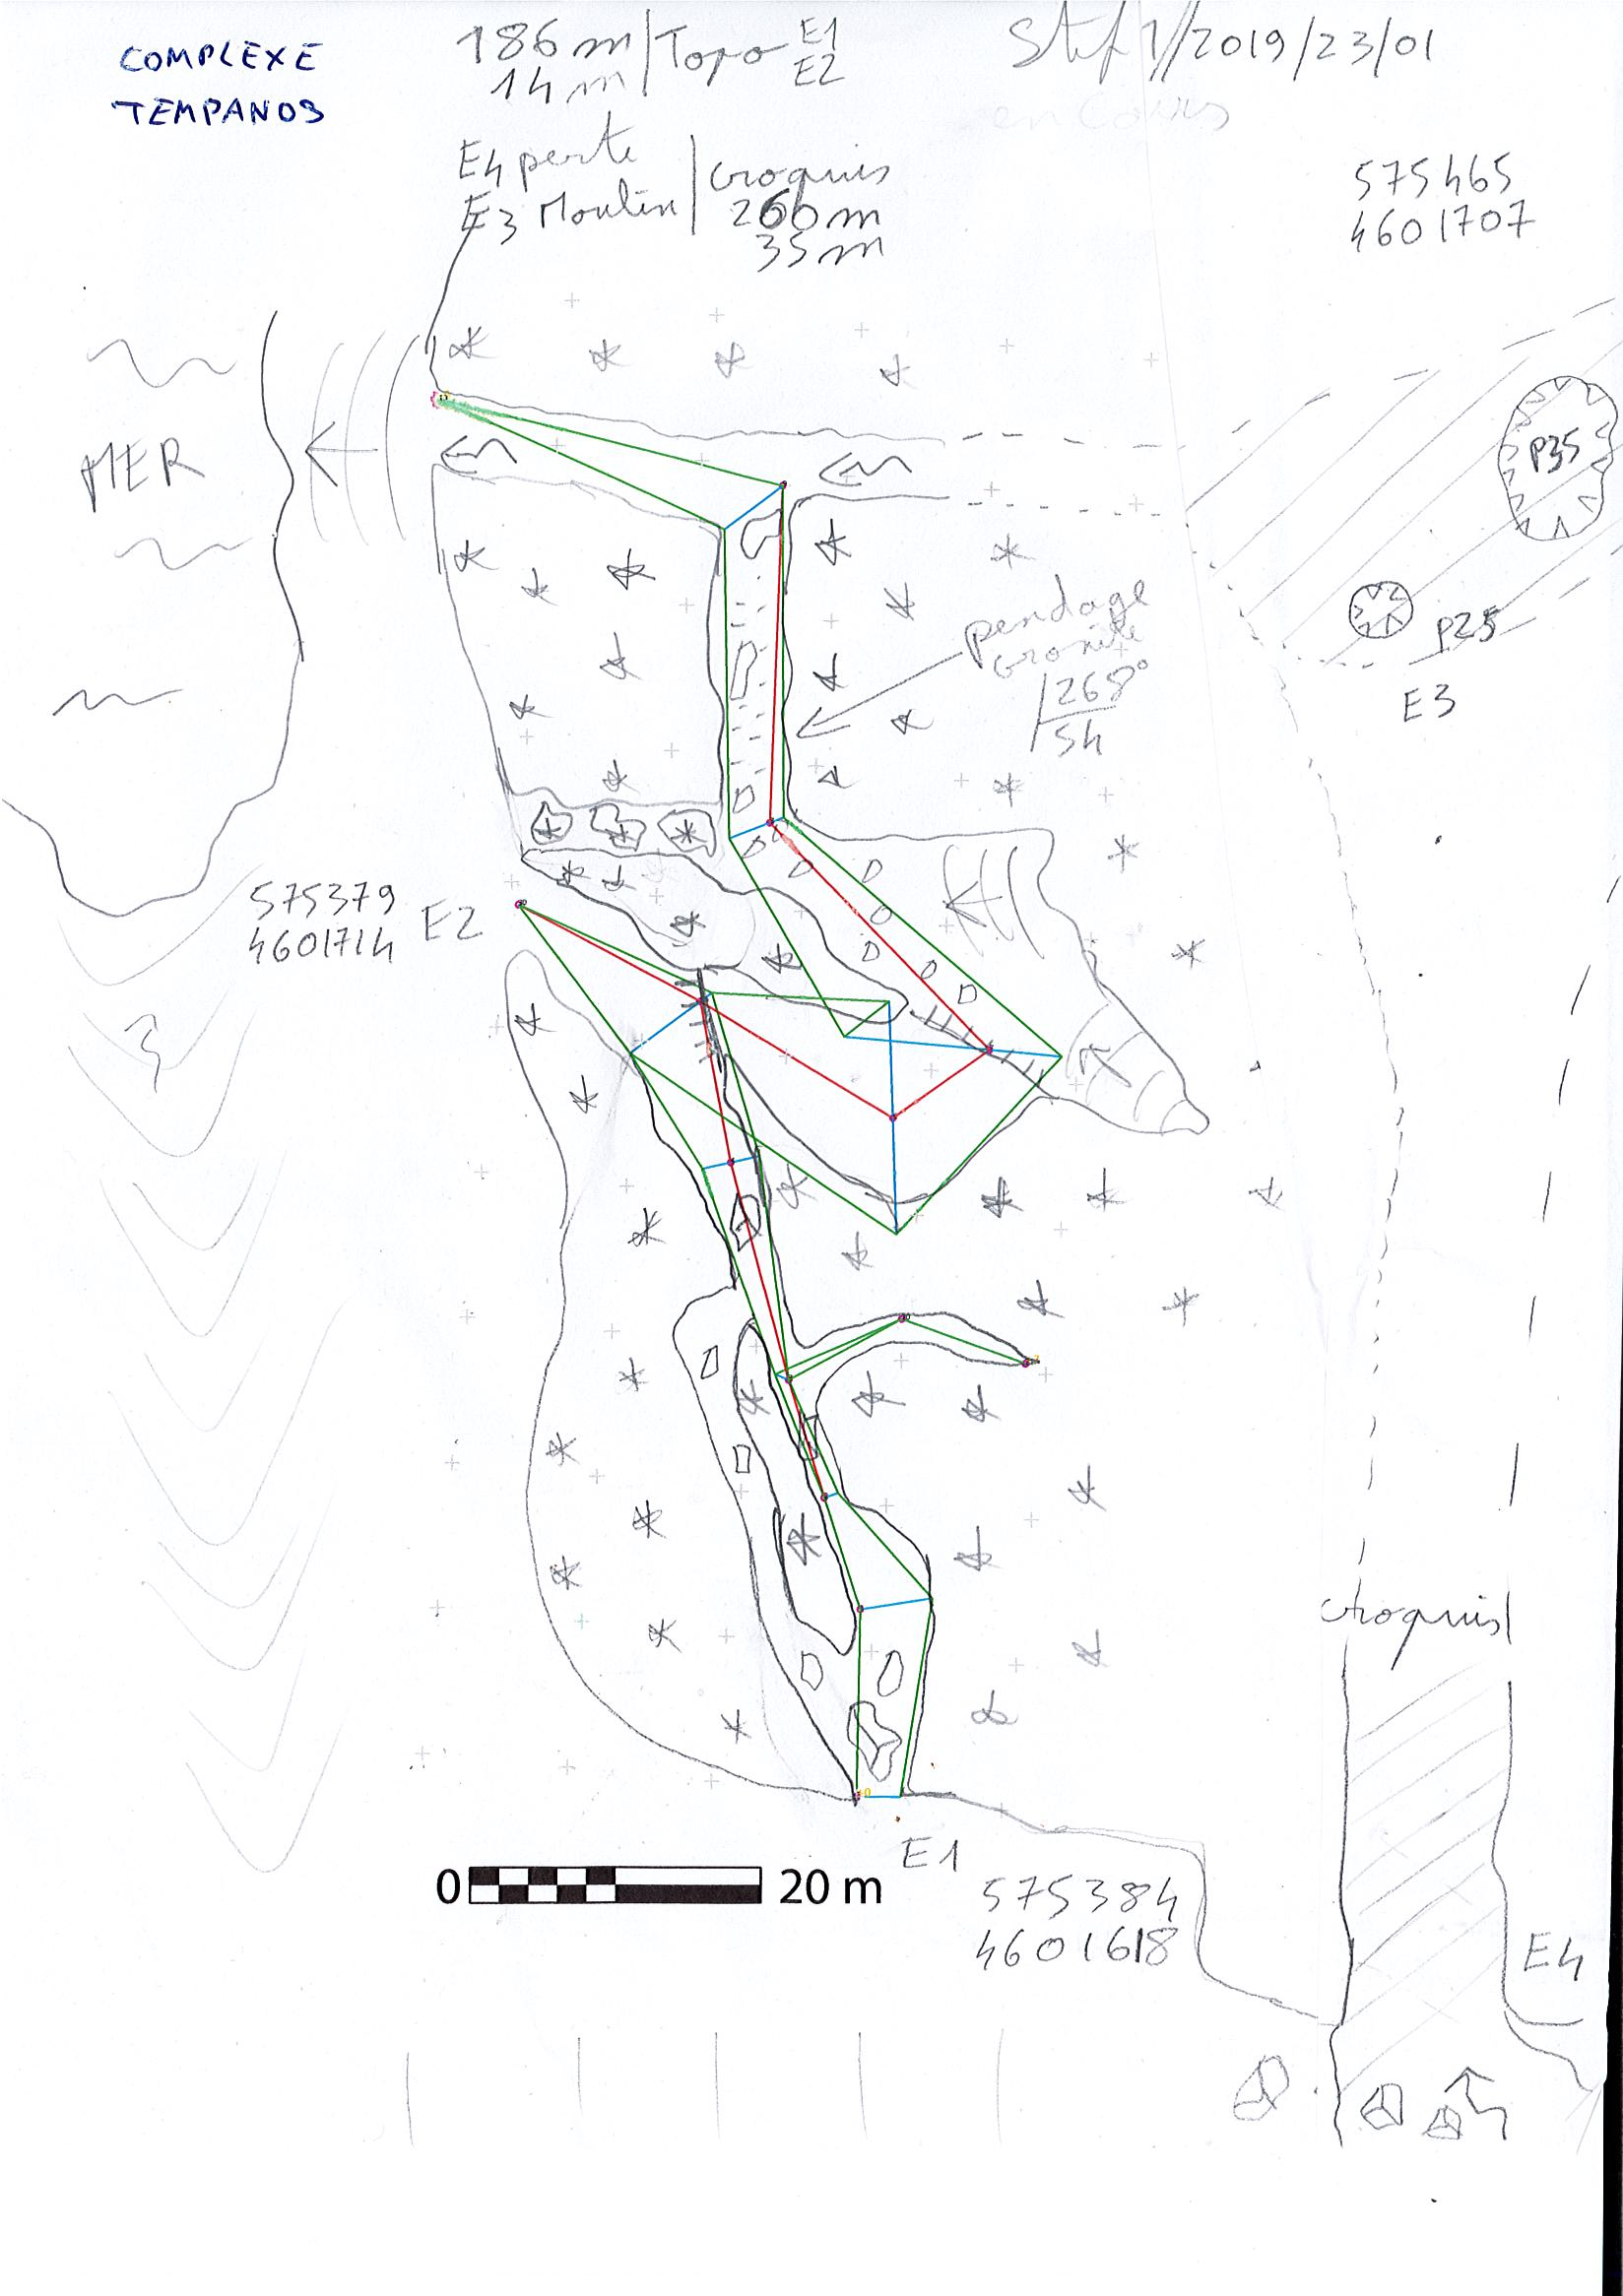 COMPLEXE
TEMPANOS
186 m / Topo E1
14 m E2
Stef 1/2019/23/01
en cours
E4 perte
E3 Moulin
croquis
260 m
35 m
575465
4601707
MER
P35
P25
E3
pendage
granite
268°
54
575379
4601714
E2
croquis
0
20 m
E1
575384
4601618
E4